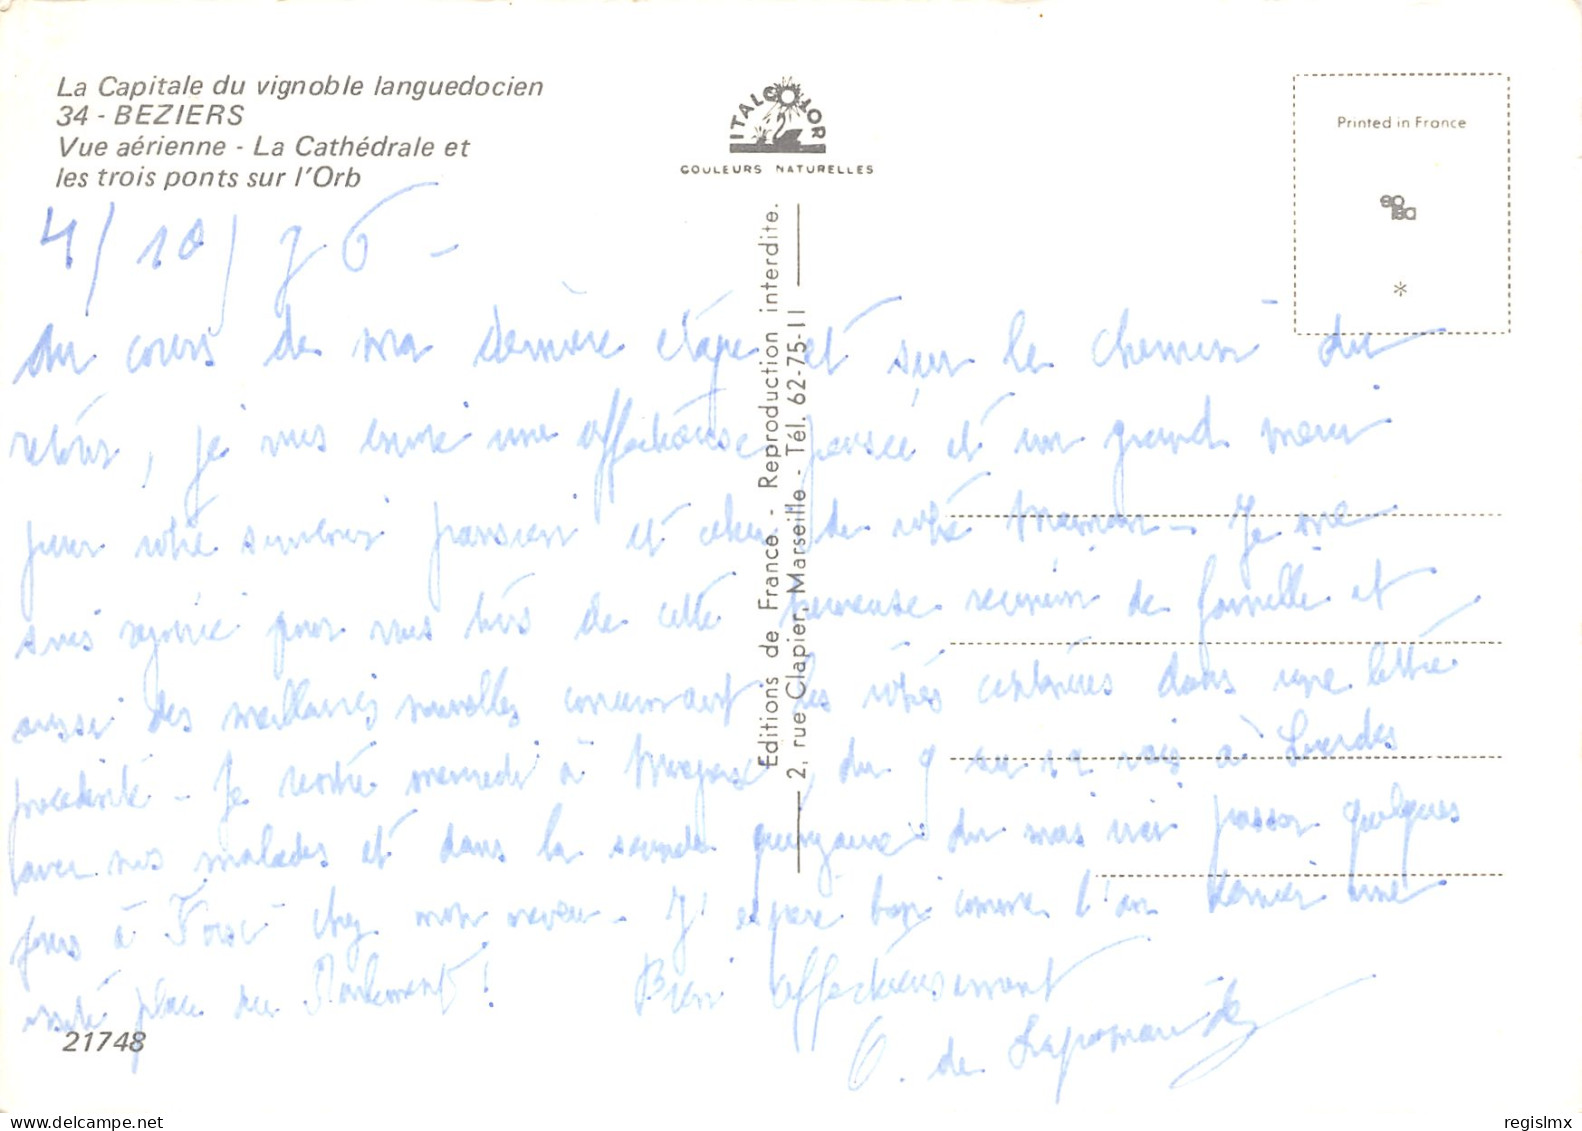 La Capitale du vignoble languedocien
34 - BEZIERS
Vue aérienne - La Cathédrale et
les trois ponts sur l'Orb
ITALCOLOR
COULEURS NATURELLES
Printed in France
*
Editions de France - Reproduction interdite.
2, rue Clapier, Marseille - Tél. 62-75-11
4/10/76 -
Au cours de ma dernière étape et sur le chemin du
retour, je vous envoie une affectueuse pensée et un grand merci
pour votre souvenir et celui de votre Maman - Je me
suis réjouie pour vous tous de cette heureuse réunion de famille et
aussi des meilleures nouvelles concernant les vôtres dans une lettre
précédente - Je rentre mercredi à, du 9 au 12 vais à Lourdes
avec nos malades et dans la seconde quinzaine du mois irai passer quelques
jours à chez mon neveu - J'espère bien comme l'an dernier une
visite place du Parlement! Bien affectueusement
de
21748
regislmx